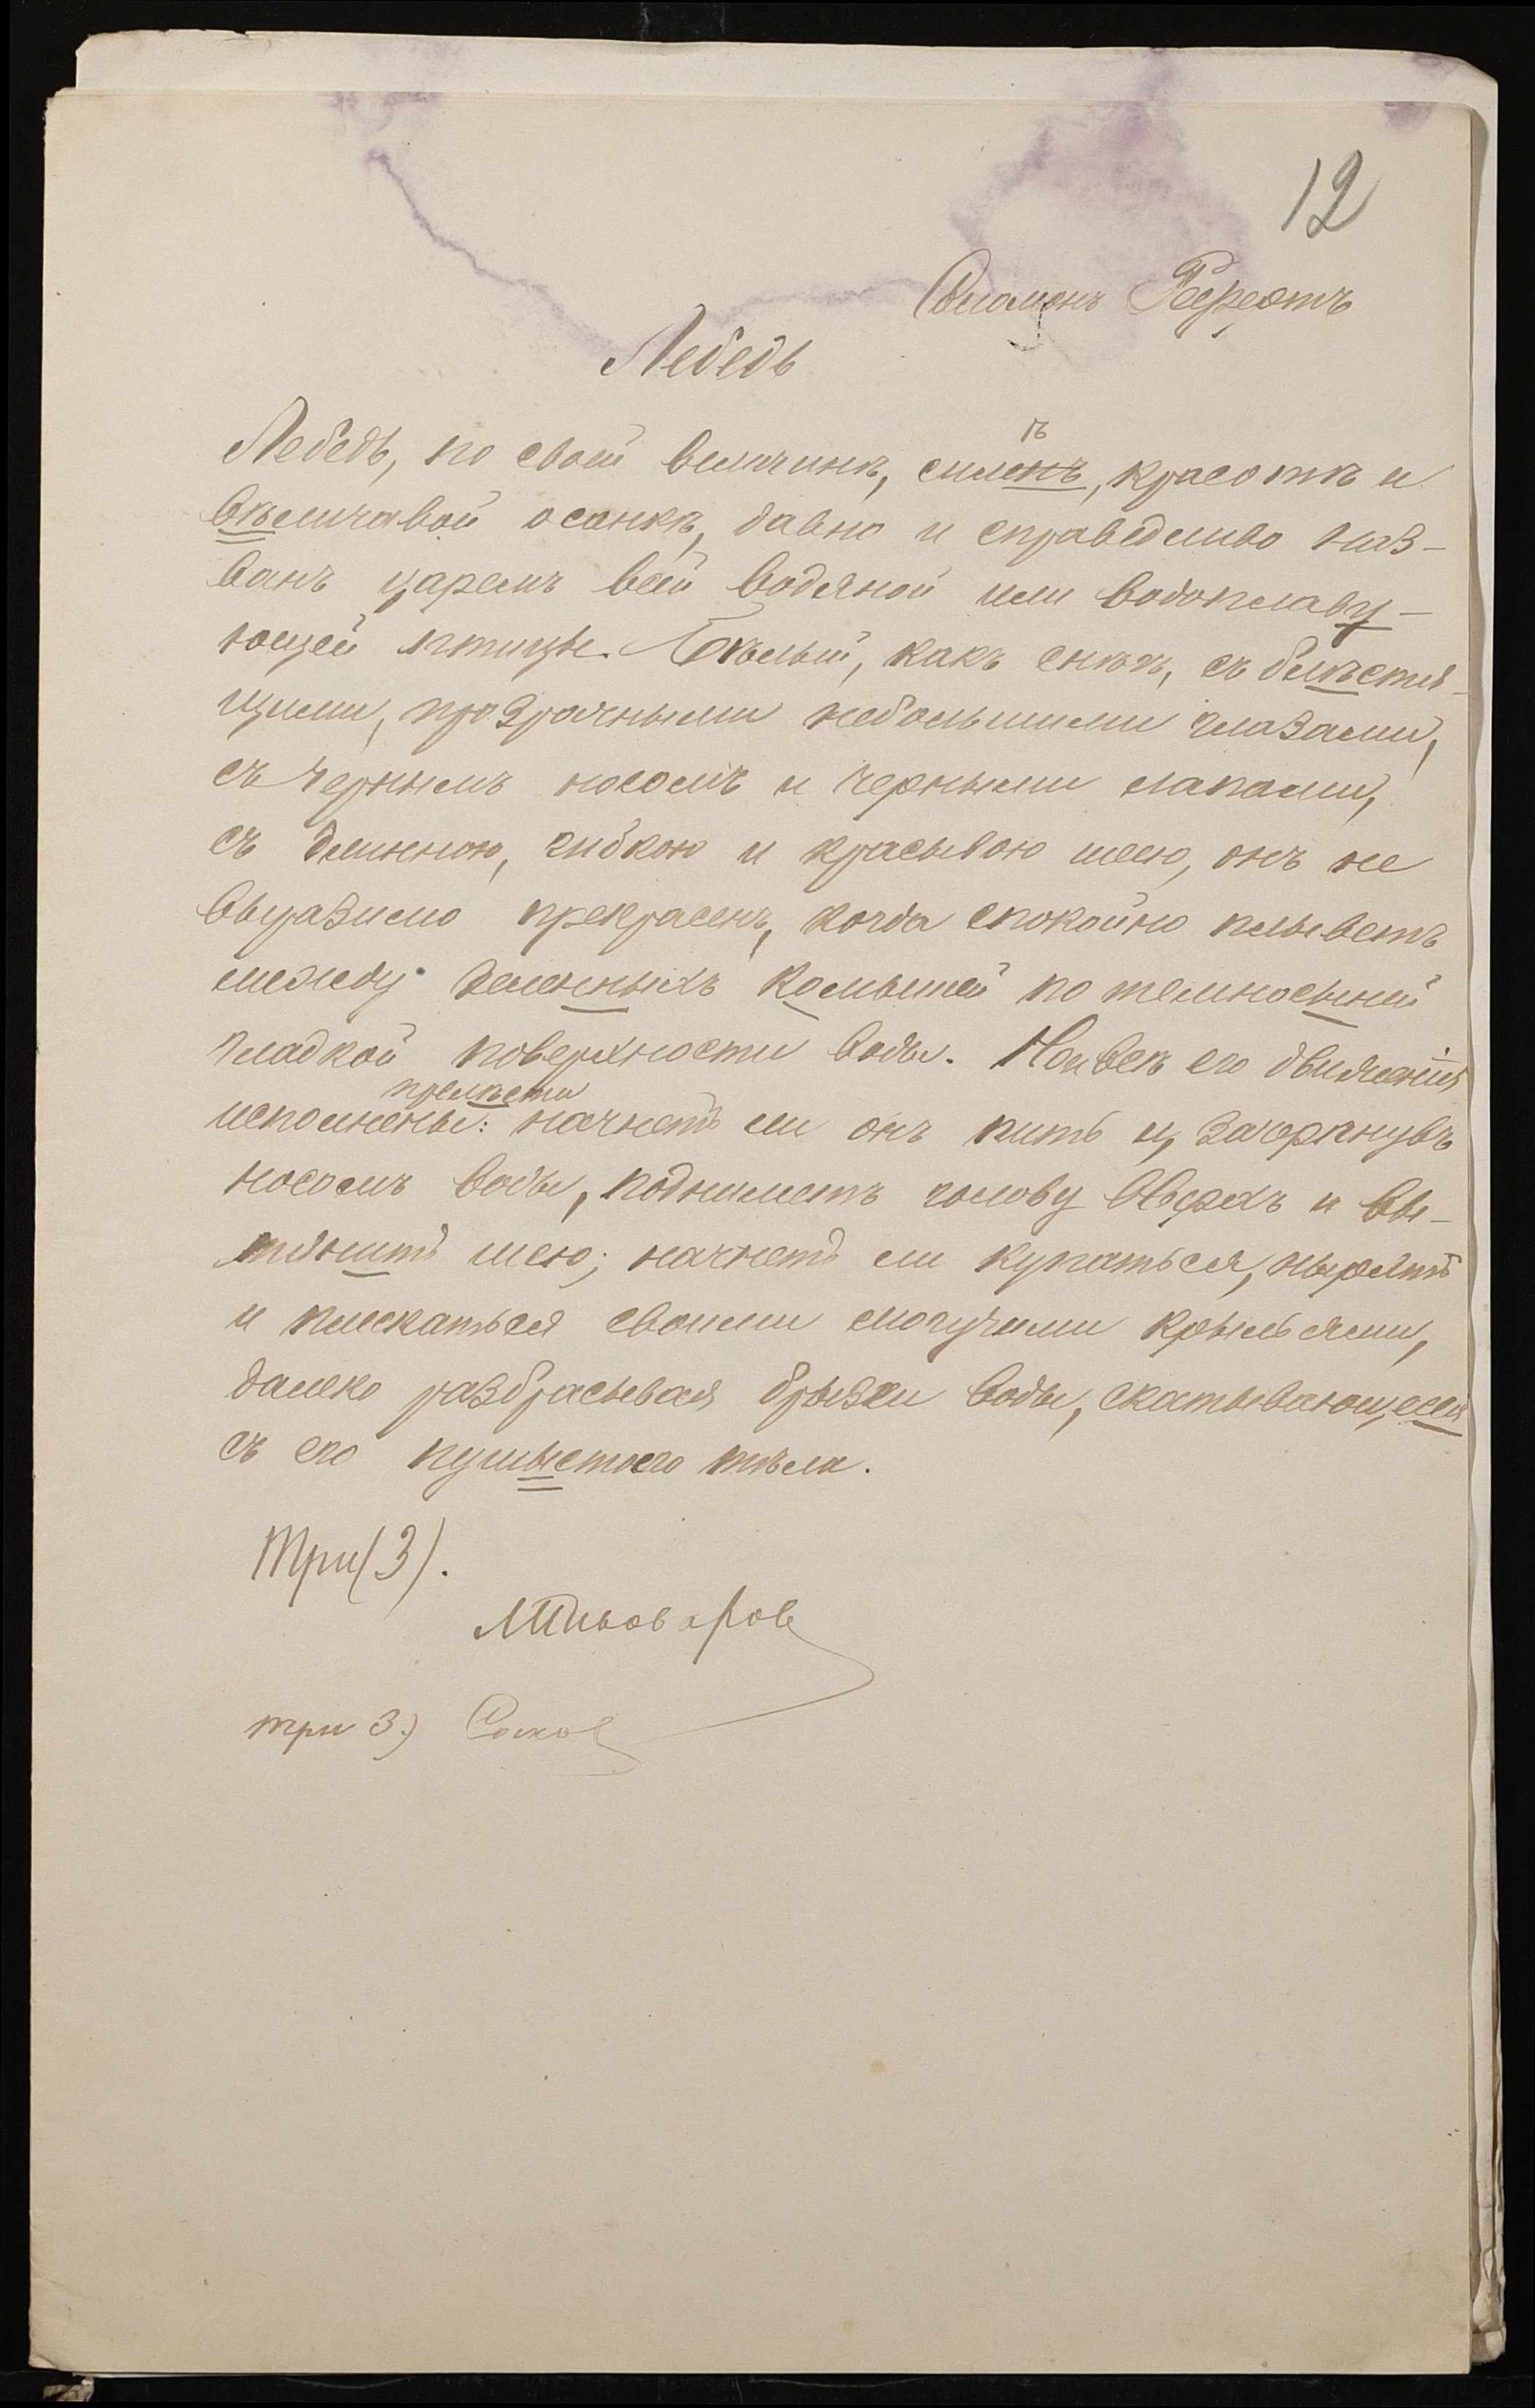 12
Соломонъ
Лебедь
Лебедь, по своей величинѣ, силенъ, красотѣ и
ѣ
вѣличавой осанкѣ, давно и справедливо наз-
ванъ царемъ всей водяной или водоплаву-
ющей птицы. Бѣлый, какъ снѣгъ, съ блѣстя-
щими, прозрачными небольшими глазами,
съ чернымъ носомъ и черными лапами,
съ длинною, гибкою и красывою шею, онъ не
выразимо прекрасенъ, когда спокойно плыветъ
между зеленныхъ комышей по темносыней
гладкой поверхности воды. Но всѣ его движенія
прелѣсти
исполнены: начнетъ ли онъ пить и, зачерпнувъ
носомъ воды, подниметъ голову вверхъ и вы-
тянитъ шею; начнетъ ли купаться, нырять
и плескаться своими могучими крыльями,
далеко разбрасывая брызги воды, скатывающееся
съ его пушыстого тѣла.
Три (3).
три 3.)